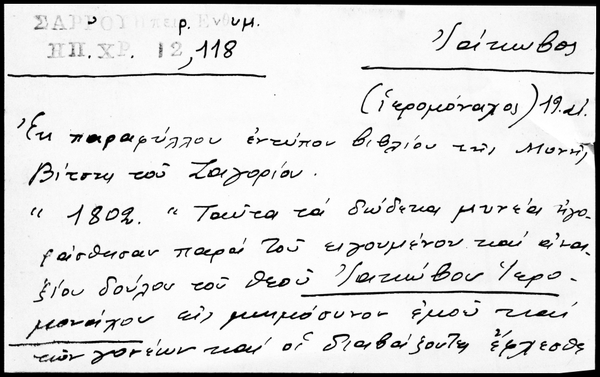 ΣΑΡΡΟΥ Ἠπειρ. Ἐνθυμ.
ΗΠ. ΧΡ. 12, 118
Ἰάκωβος
(ἱερομόναχος) 19. αἰ.
Ἐκ παραφύλλου ἐντύπου βιβλίου τῆς Μονῆς
Βίτσης τοῦ Ζαγορίου.
" 1802. " Ταῦτα τά δώδεκα μηνεῖα ἠγο-
ράσθησαν παρά τοῦ ειγουμένου καί ἀνα-
ξίου δούλου τοῦ θεοῦ Ἰακώβου Ἱερο-
μονάχου εἰς μνημόσυνον ἐμοῦ καί
τῶν γονέων καί οἱ διαβάζοντες εὔχεσθε